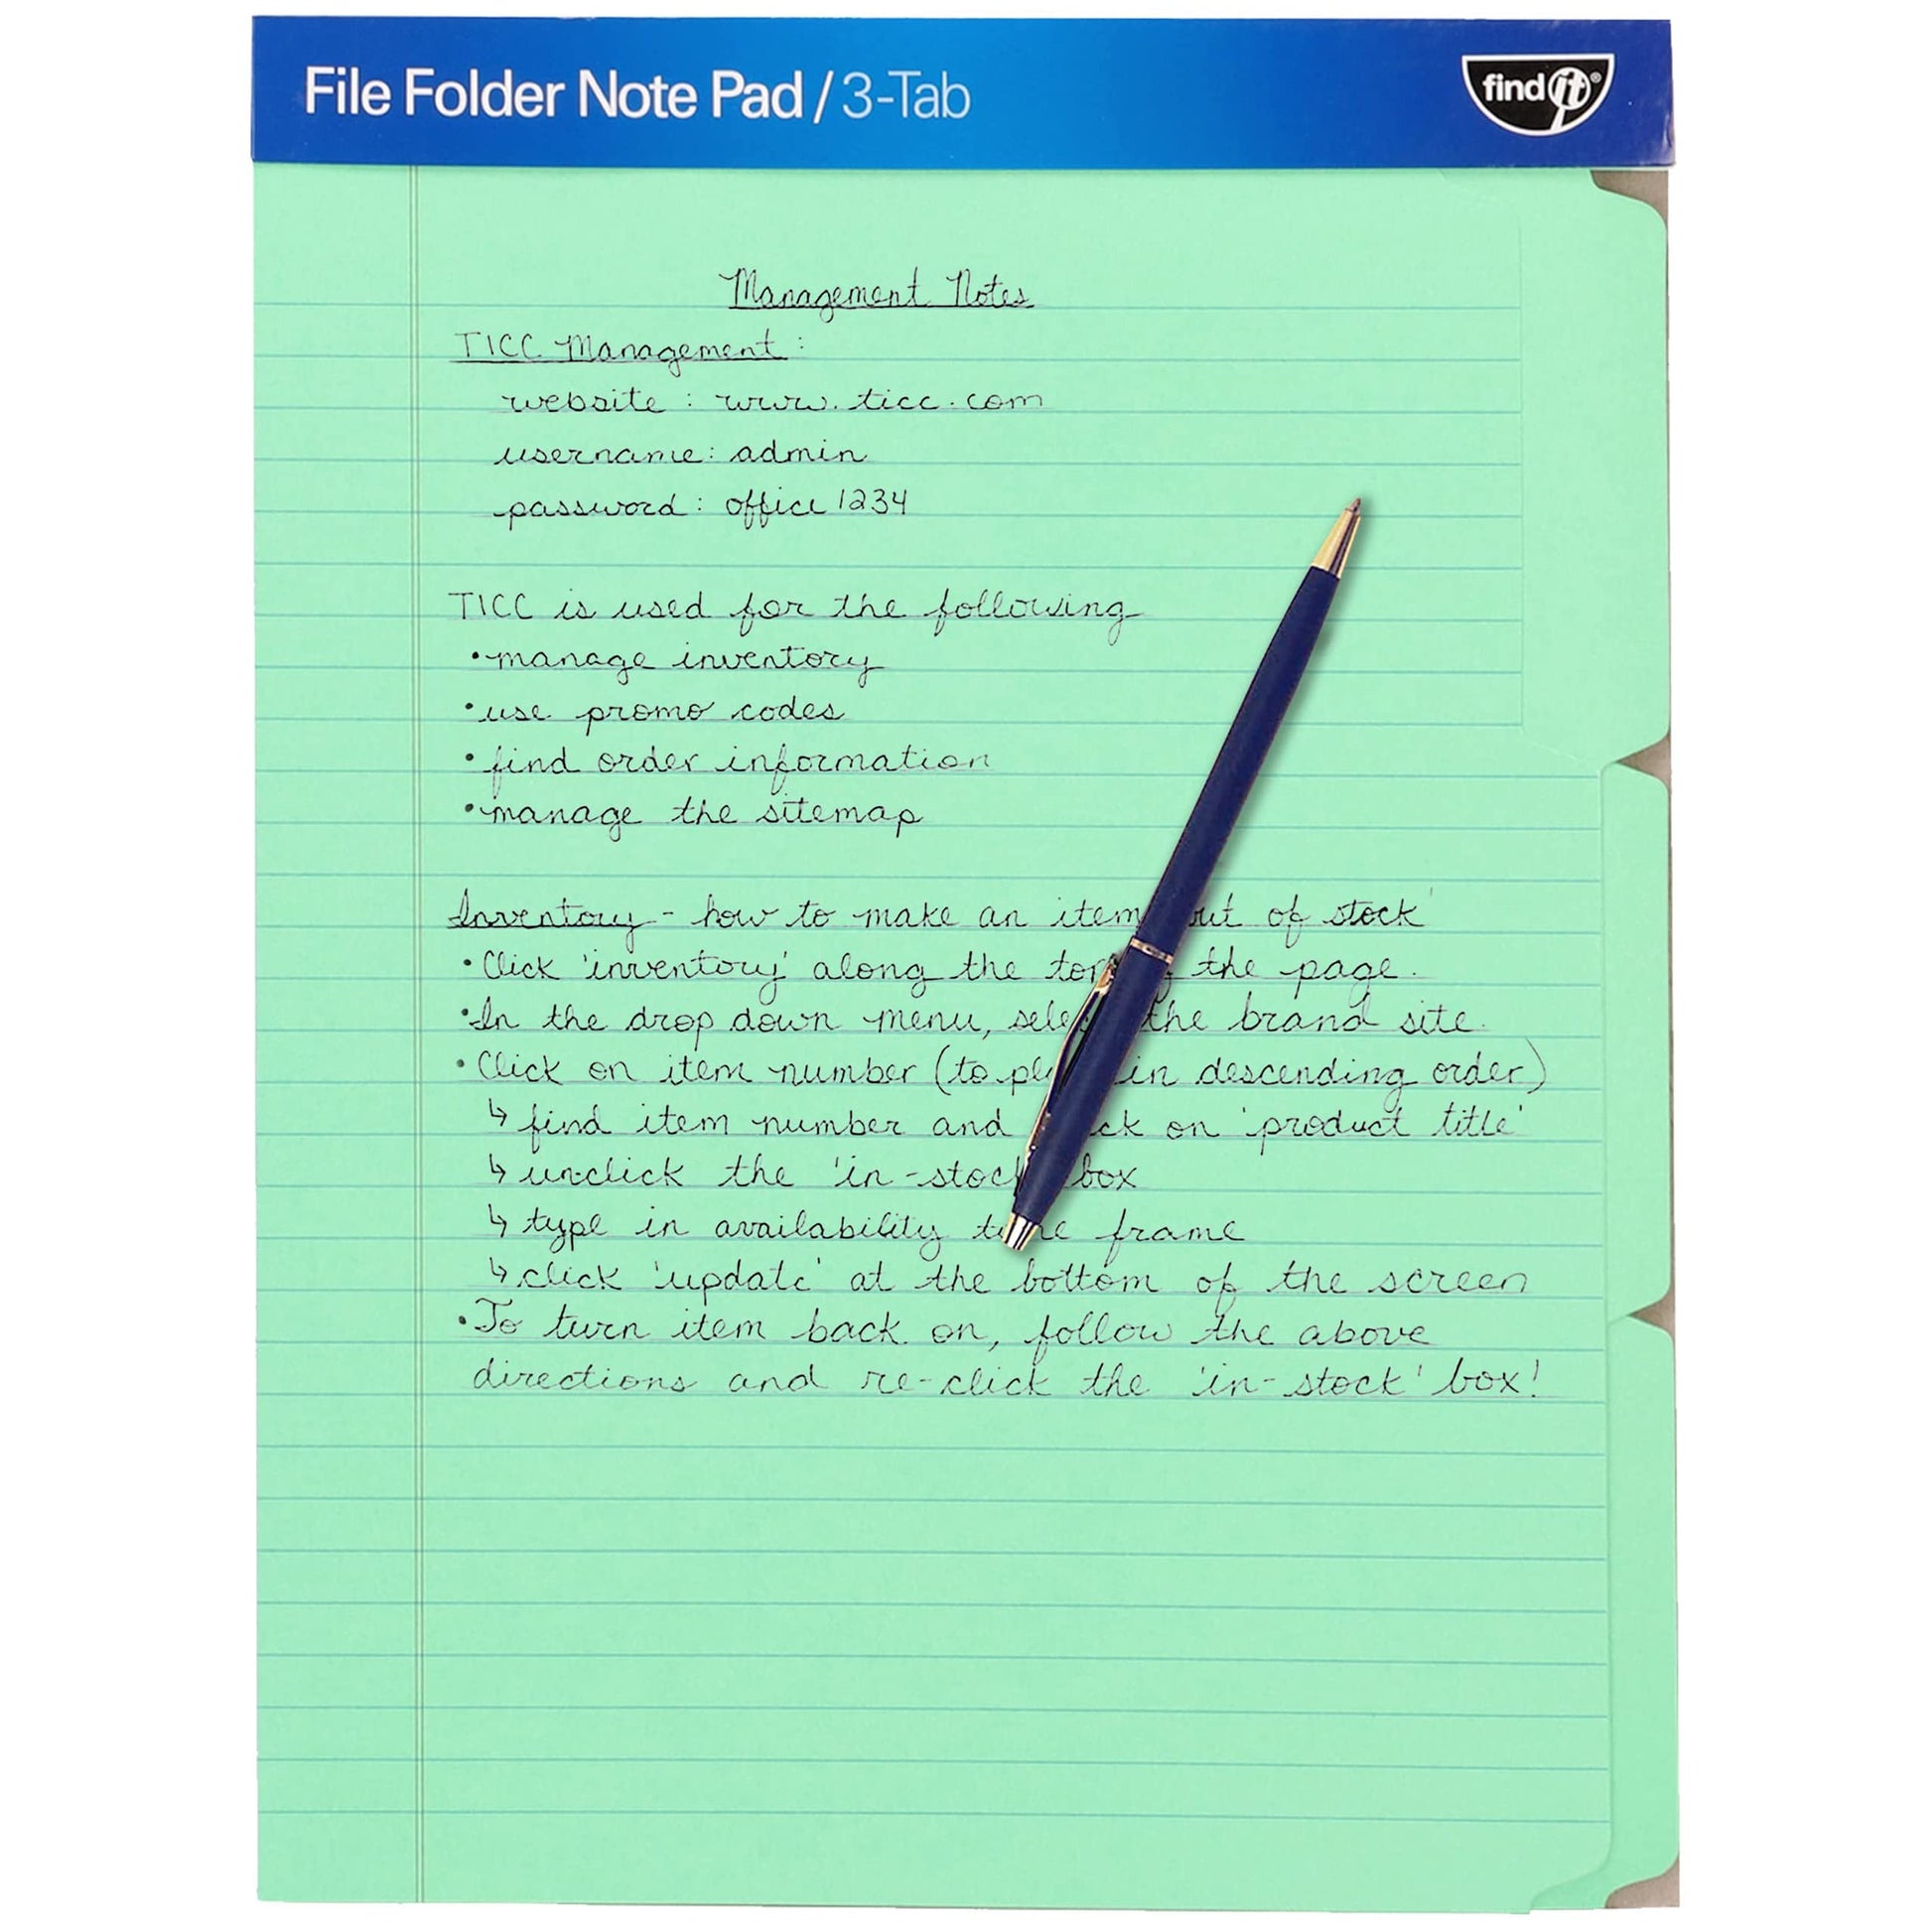 File Folder Note Pad / 3-Tab
find it®
Management Notes
TICC Management:
website: www.ticc.com
username: admin
password: office1234
TICC is used for the following
• manage inventory
• use promo codes
• find order information
• manage the sitemap
Inventory - how to make an item of stock'
• Click 'inventory' along the the page.
• In the drop down menu, the brand site.
• Click on item number (to in descending order)
↳ find item number and on 'product title'
↳ unclick the 'in-stock box
↳ type in availability frame
↳ click 'update' at the bottom of the screen
• To turn item back on, follow the above
directions and re-click the 'in-stock' box!